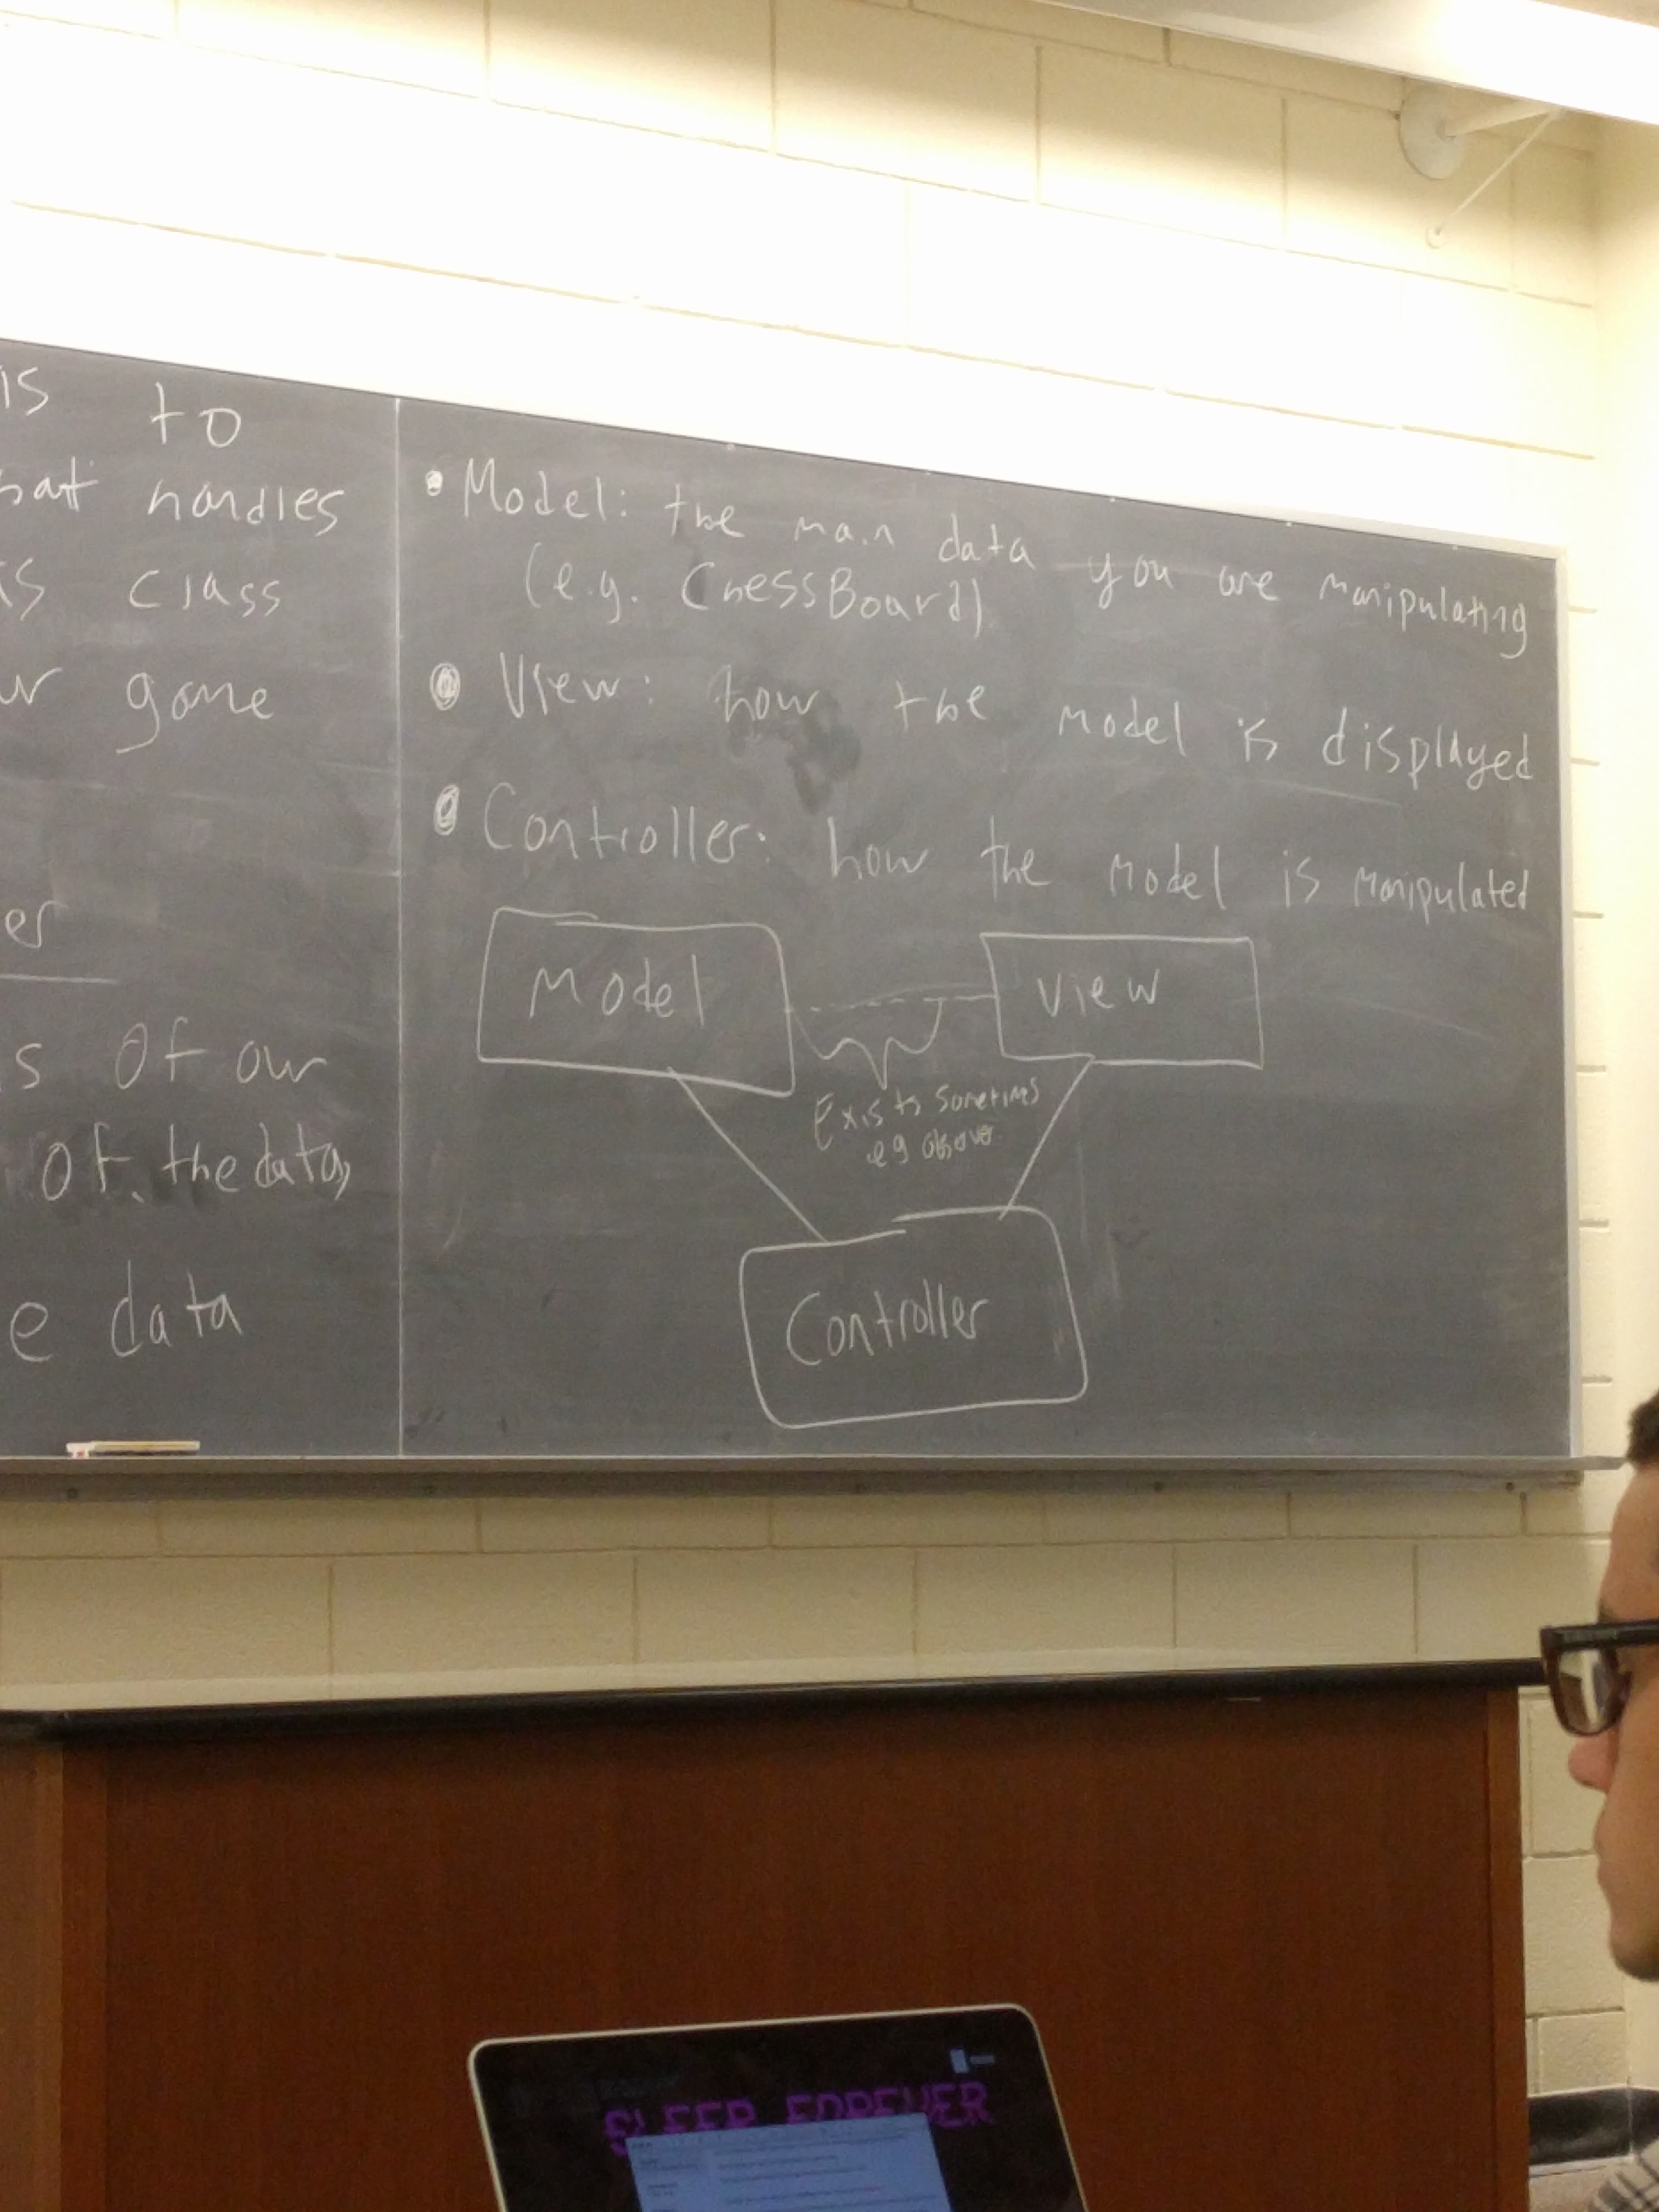 is to
hat handles
is class
ur game
er
s of our
of the data,
e data
• Model: the main data you are manipulating
(e.g. ChessBoard)
• View: how the model is displayed
• Controller: how the model is manipulated
Model
View
Exists sometimes
eg observer
Controller
SLEEP FOREVER